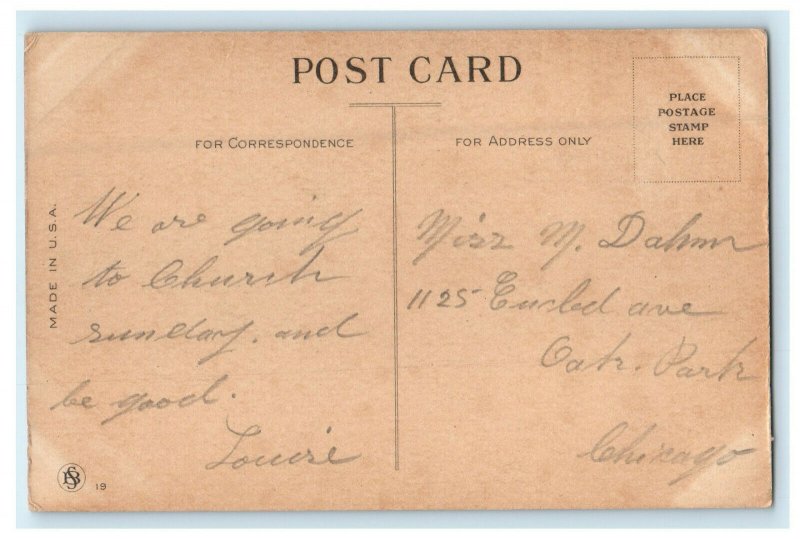 POST CARD
FOR CORRESPONDENCE
FOR ADDRESS ONLY
PLACE
POSTAGE
STAMP
HERE
MADE IN U.S.A.
We are going
to Church
sunday. and
be good.
Louise
Miss M. Dahm
1125 Euclid ave
Oak. Park
Chicago
19